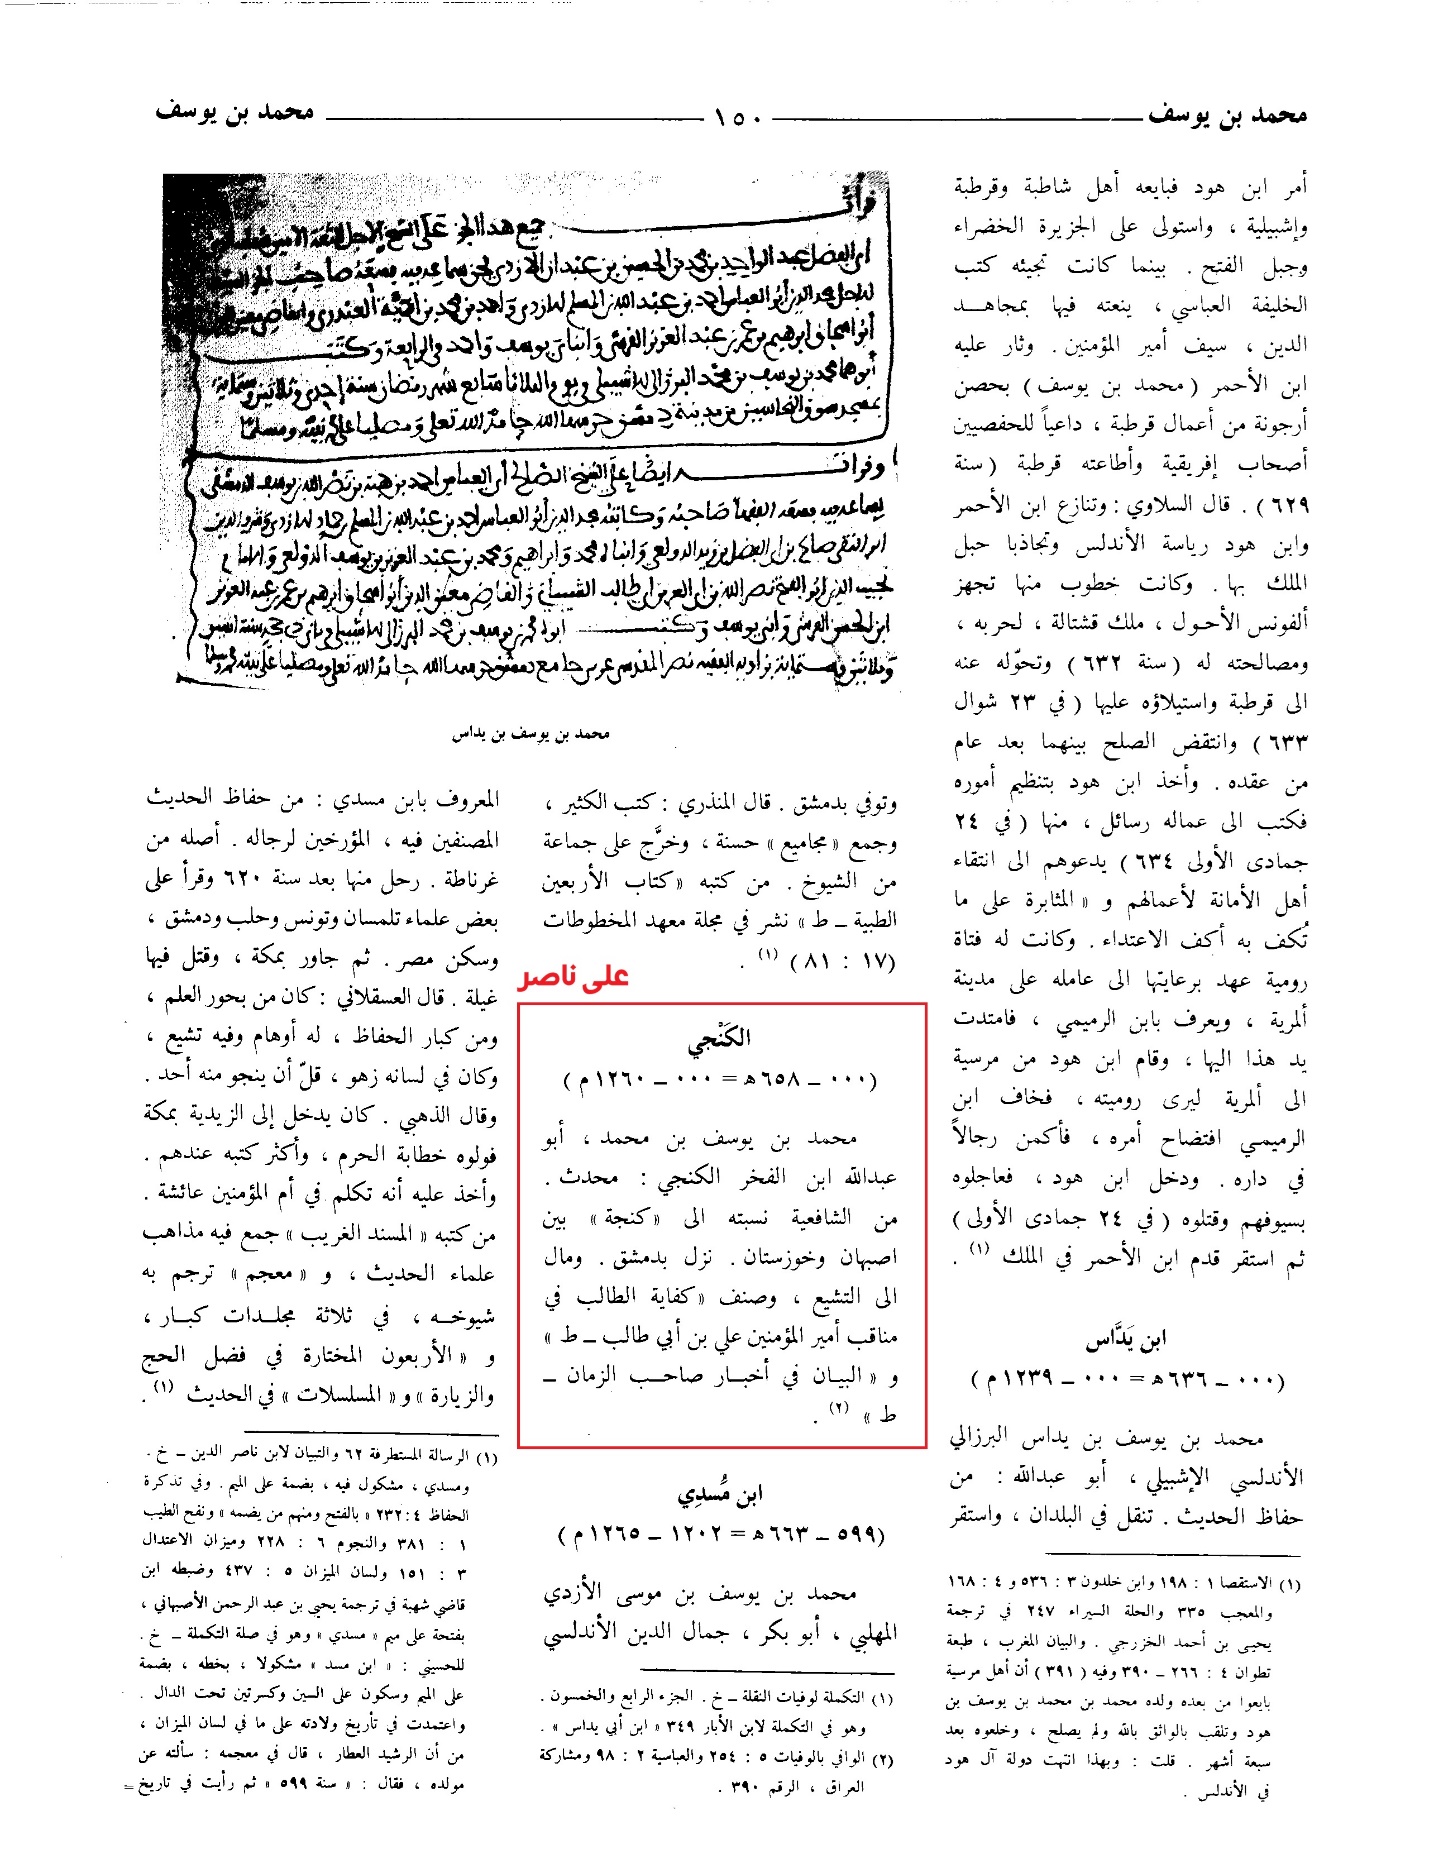 محمد بن يوسف ١٥٠ محمد بن يوسف
أمر ابن هود فبايعه أهل شاطبة وقرطبة
وإشبيلية ، واستولى على الجزيرة الخضراء
وجبل الفتح . بينما كانت تجيئه كتب
الخليفة العباسي ، ينعته فيها بمجاهد
الدين ، سيف أمير المؤمنين . وثار عليه
ابن الأحمر ( محمد بن يوسف ) بحصن
أرجونة من أعمال قرطبة ، داعياً للحفصيين
أصحاب إفريقية وأطاعته قرطبة ( سنة
٦٢٩ ) . قال السلاوي : وتنازع ابن الأحمر
وابن هود رياسة الأندلس وتجاذبا حبل
الملك بها . وكانت خطوب منها تجهز
ألفونس الأحول ، ملك قشتالة ، لحربه ،
ومصالحته له ( سنة ٦٣٢ ) وتحوّله عنه
الى قرطبة واستيلاؤه عليها ( في ٢٣ شوال
٦٣٣ ) وانتقض الصلح بينهما بعد عام
من عقده . وأخذ ابن هود بتنظيم أموره
فكتب الى عماله رسائل ، منها ( في ٢٤
جمادى الأولى ٦٣٤ ) يدعوهم الى انتقاء
أهل الأمانة لأعمالهم و « المثابرة على ما
تُكف به أكف الاعتداء . وكانت له فتاة
رومية عهد برعايتها الى عامله على مدينة
ألمرية ، ويعرف بابن الرميمي ، فامتدت
يد هذا اليها ، وقام ابن هود من مرسية
الى ألمرية ليرى روميته ، فخاف ابن
الرميمي افتضاح أمره ، فأكمن رجالاً
في داره . ودخل ابن هود ، فعاجلوه
بسيوفهم وقتلوه ( في ٢٤ جمادى الأولى )
ثم استقر قدم ابن الأحمر في الملك (١) .
ابن يَدَّاس
( ٠٠٠ ــ ٦٣٦ هـ = ٠٠٠ ــ ١٢٣٩ م )
محمد بن يوسف بن يداس البرزالي
الأندلسي الإشبيلي ، أبو عبدالله : من
حفاظ الحديث . تنقل في البلدان ، واستقر
(١) الاستقصا ١ : ١٩٨ وابن خلدون ٣ : ٥٣٦ و ٤ : ١٦٨
والمعجب ٣٣٥ والحلة السيراء ٢٤٧ في ترجمة
يحيى بن أحمد الخزرجي . والبيان المغرب ، طبعة
تطوان ٤ : ٢٦٦ ــ ٣٩٠ وفيه ( ٣٩١ ) أن أهل مرسية
بايعوا من بعده ولده محمد بن محمد بن يوسف بن
هود وتلقب بالواثق بالله ولم يصلح ، وخلعوه بعد
سبعة أشهر . قلت : وبهذا انتهت دولة آل هود
في الأندلس .
محمد بن يوسف بن يداس
وتوفي بدمشق . قال المنذري : كتب الكثير ،
وجمع « مجاميع » حسنة ، وخرَّج على جماعة
من الشيوخ . من كتبه « كتاب الأربعين
الطبية ــ ط » نشر في مجلة معهد المخطوطات
( ١٧ : ٨١ ) (١) .
على ناصر
الكَنْجي
( ٠٠٠ ــ ٦٥٨ هـ = ٠٠٠ ــ ١٢٦٠ م )
محمد بن يوسف بن محمد ، أبو
عبدالله ابن الفخر الكنجي : محدث .
من الشافعية نسبته الى « كنجة » بين
اصبهان وخوزستان . نزل بدمشق . ومال
الى التشيع ، وصنف « كفاية الطالب في
مناقب أمير المؤمنين علي بن أبي طالب ــ ط »
و « البيان في أخبار صاحب الزمان ــ
ط » (٢) .
ابن مُسْدِي
( ٥٩٩ ــ ٦٦٣ هـ = ١٢٠٢ ــ ١٢٦٥ م )
محمد بن يوسف بن موسى الأزدي
المهلبي ، أبو بكر ، جمال الدين الأندلسي
(١) التكملة لوفيات النقلة ــ خ . الجزء الرابع والخمسون .
وهو في التكملة لابن الأبار ٣٤٩ « ابن أبي يداس » .
(٢) الوافي بالوفيات ٥ : ٢٥٤ والعباسية ٢ : ٩٨ ومشاركة
العراق ، الرقم ٣٩٠ .
المعروف بابن مسدي : من حفاظ الحديث
المصنفين فيه ، المؤرخين لرجاله . أصله من
غرناطة . رحل منها بعد سنة ٦٢٠ وقرأ على
بعض علماء تلمسان وتونس وحلب ودمشق ،
وسكن مصر . ثم جاور بمكة ، وقتل فيها
غيلة . قال العسقلاني : كان من بحور العلم ،
ومن كبار الحفاظ ، له أوهام وفيه تشيع ،
وكان في لسانه زهو ، قلّ أن ينجو منه أحد .
وقال الذهبي . كان يدخل إلى الزيدية بمكة
فولوه خطابة الحرم ، وأكثر كتبه عندهم .
وأخذ عليه أنه تكلم في أم المؤمنين عائشة .
من كتبه « المسند الغريب » جمع فيه مذاهب
علماء الحديث ، و « معجم » ترجم به
شيوخه ، في ثلاثة مجلدات كبار ،
و « الأربعون المختارة في فضل الحج
والزيارة » و « المسلسلات » في الحديث (١) .
(١) الرسالة المستطرفة ٦٢ والتبيان لابن ناصر الدين ــ خ .
ومسدي ، مشكول فيه ، بضمة على الميم . وفي تذكرة
الحفاظ ٤ : ٢٣٢ « بالفتح ومنهم من يضمه » ونفح الطيب
١ : ٣٨١ والنجوم ٦ : ٢٢٨ وميزان الاعتدال
٣ : ١٥١ ولسان الميزان ٥ : ٤٣٧ وضبطه ابن
قاضي شهبة في ترجمة يحيى بن عبد الرحمن الأصبهاني ،
بفتحة على ميم « مسدي » وهو في صلة التكملة ــ خ .
للحسيني : « ابن مسد » مشكولا ، بخطه ، بضمة
على الميم وسكون على السين وكسرتين تحت الدال .
واعتمدت في تأريخ ولادته على ما في لسان الميزان ،
من أن الرشيد العطار ، قال في معجمه : سألته عن
مولده ، فقال : « سنة ٥٩٩ » ثم رأيت في تاريخ =